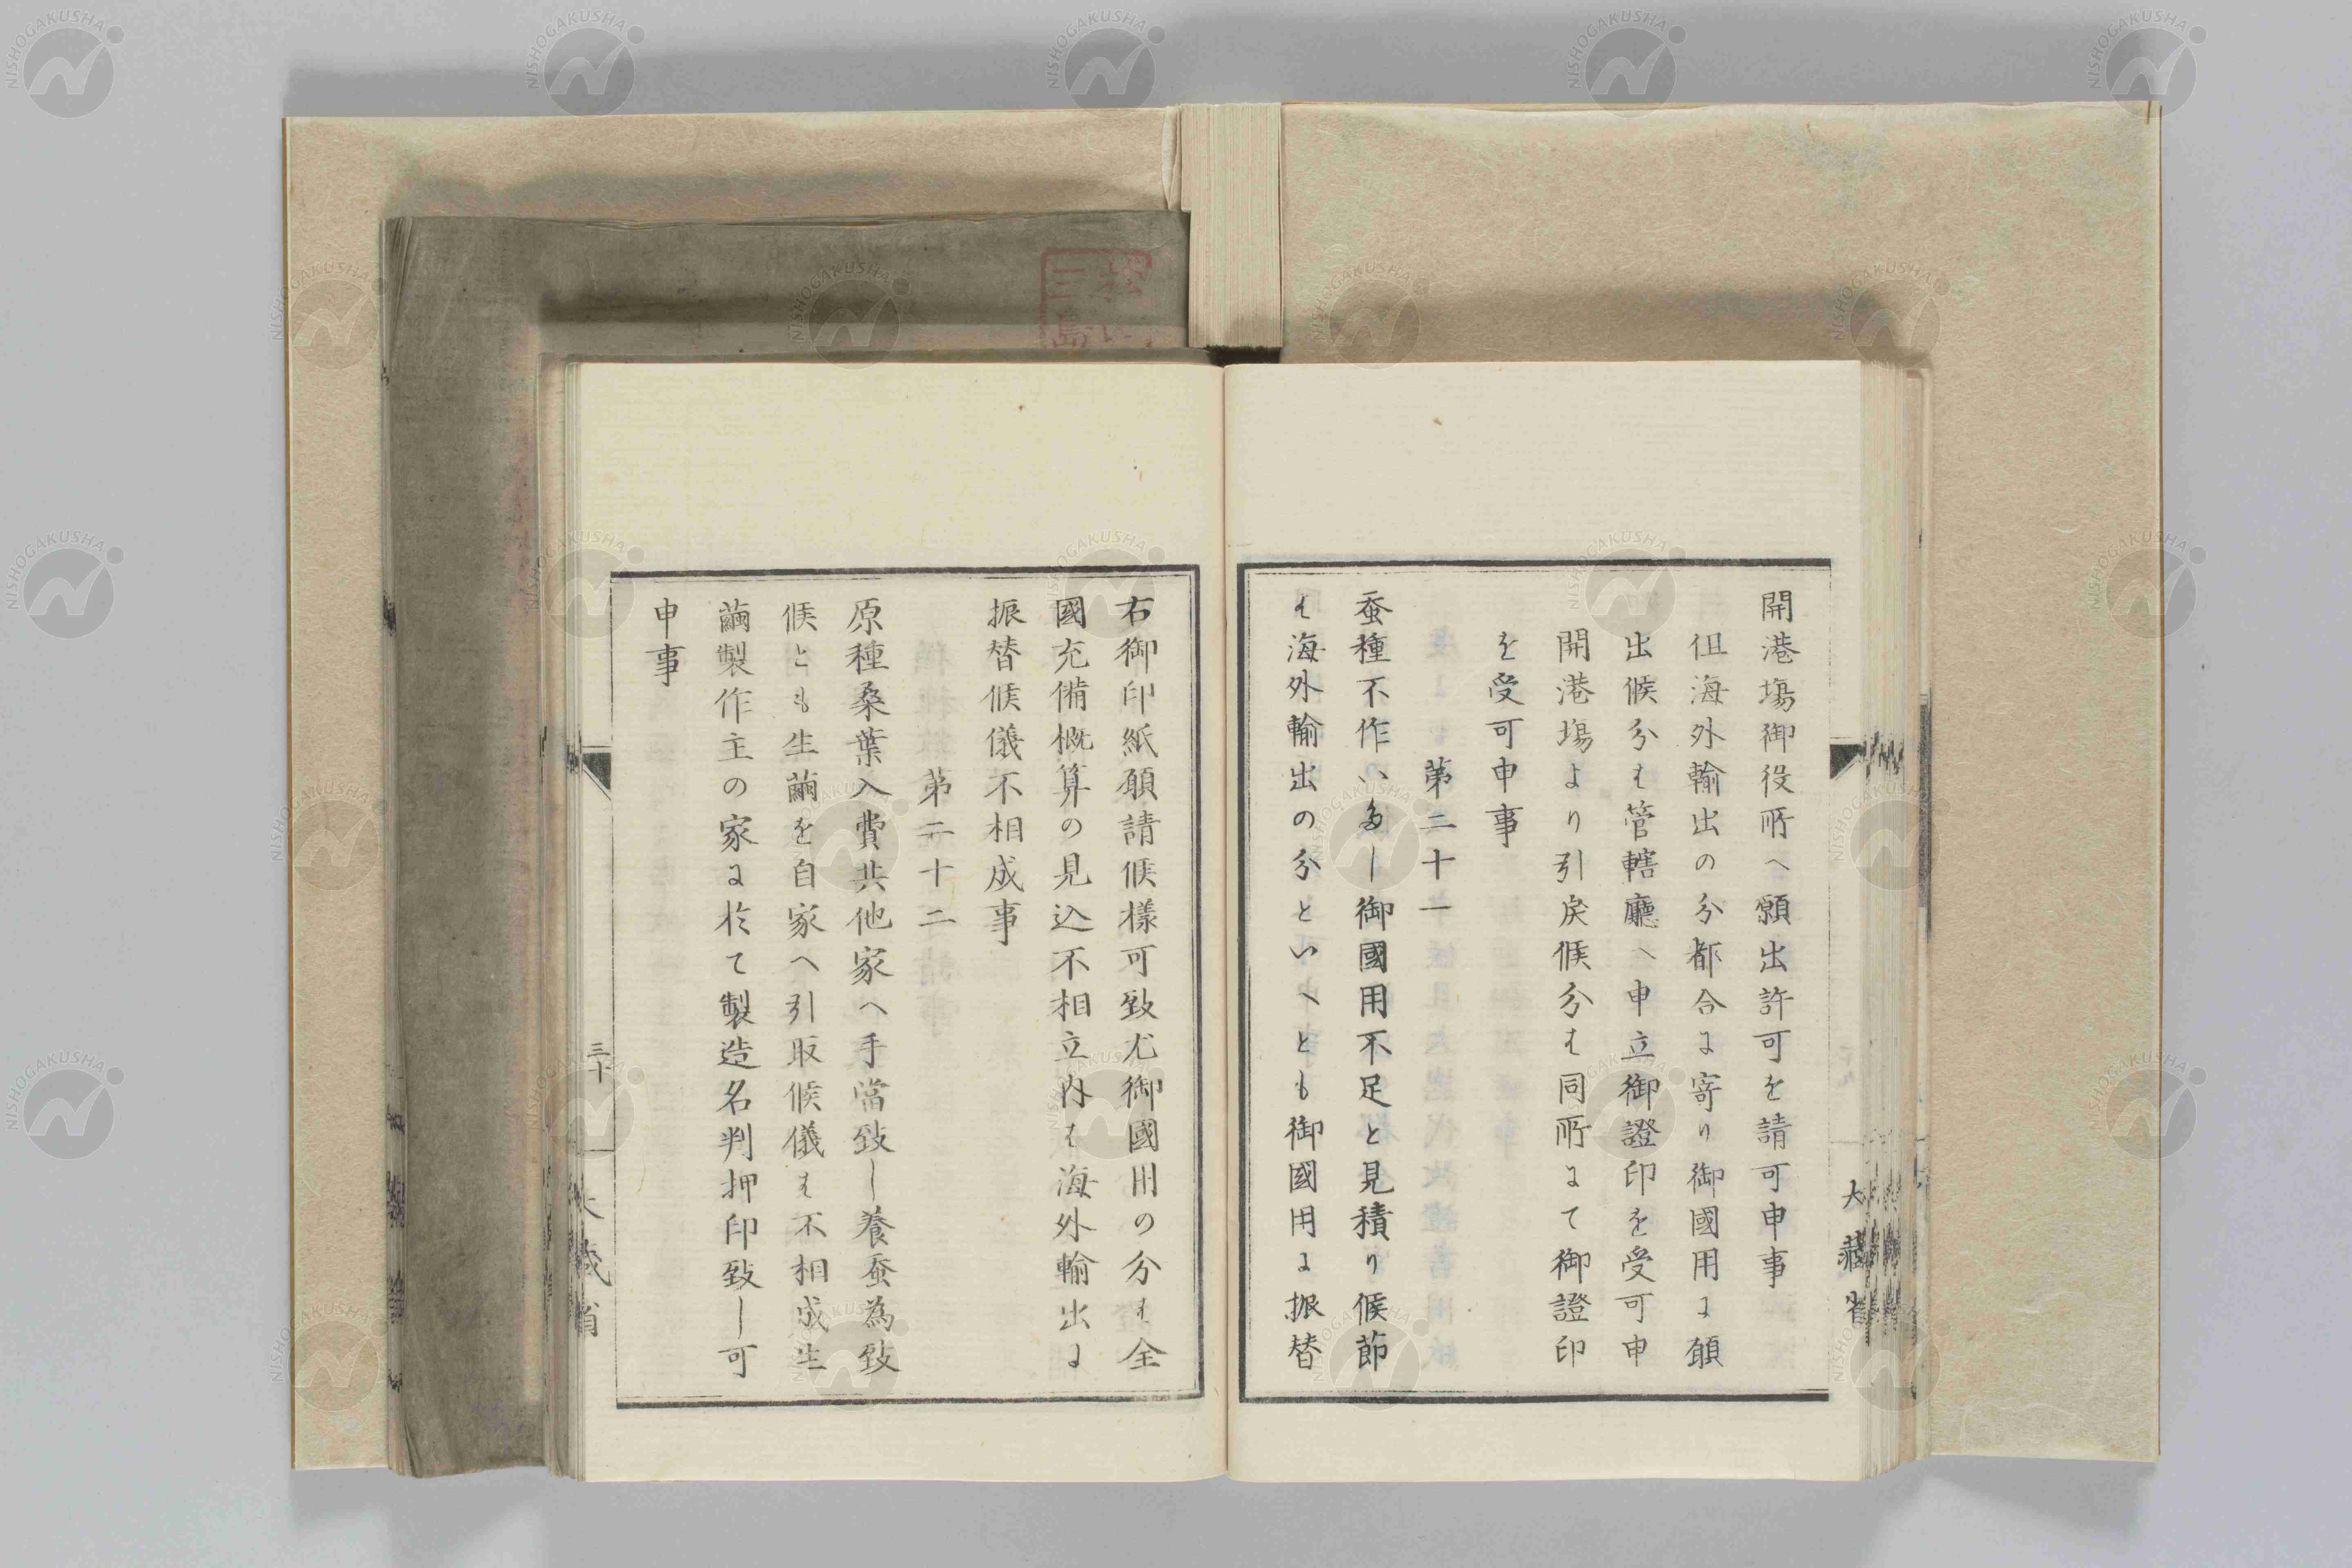 開港塲御役所へ願出許可を請可申事
但海外輸出の分都合に寄り御國用に願
出候分は管轄廳へ申立御證印を受可申
開港塲より引戻候分は同所にて御證印
を受可申事
第二十一
蚕種不作いたし御國用不足と見積り候節
は海外輸出の分といへとも御國用に振替
大藏省
右御印紙願請候樣可致尤御國用の分は全
國充備概算の見込不相立内は海外輸出に
振替候儀不相成事
第二十二
原種桑葉入費共他家へ手當致し養蚕為致
候とも生繭を自家へ引取候儀は不相成生
繭製作主の家に於て製造名判押印致し可
申事
三十
大藏省
NISHOGAKUSHA